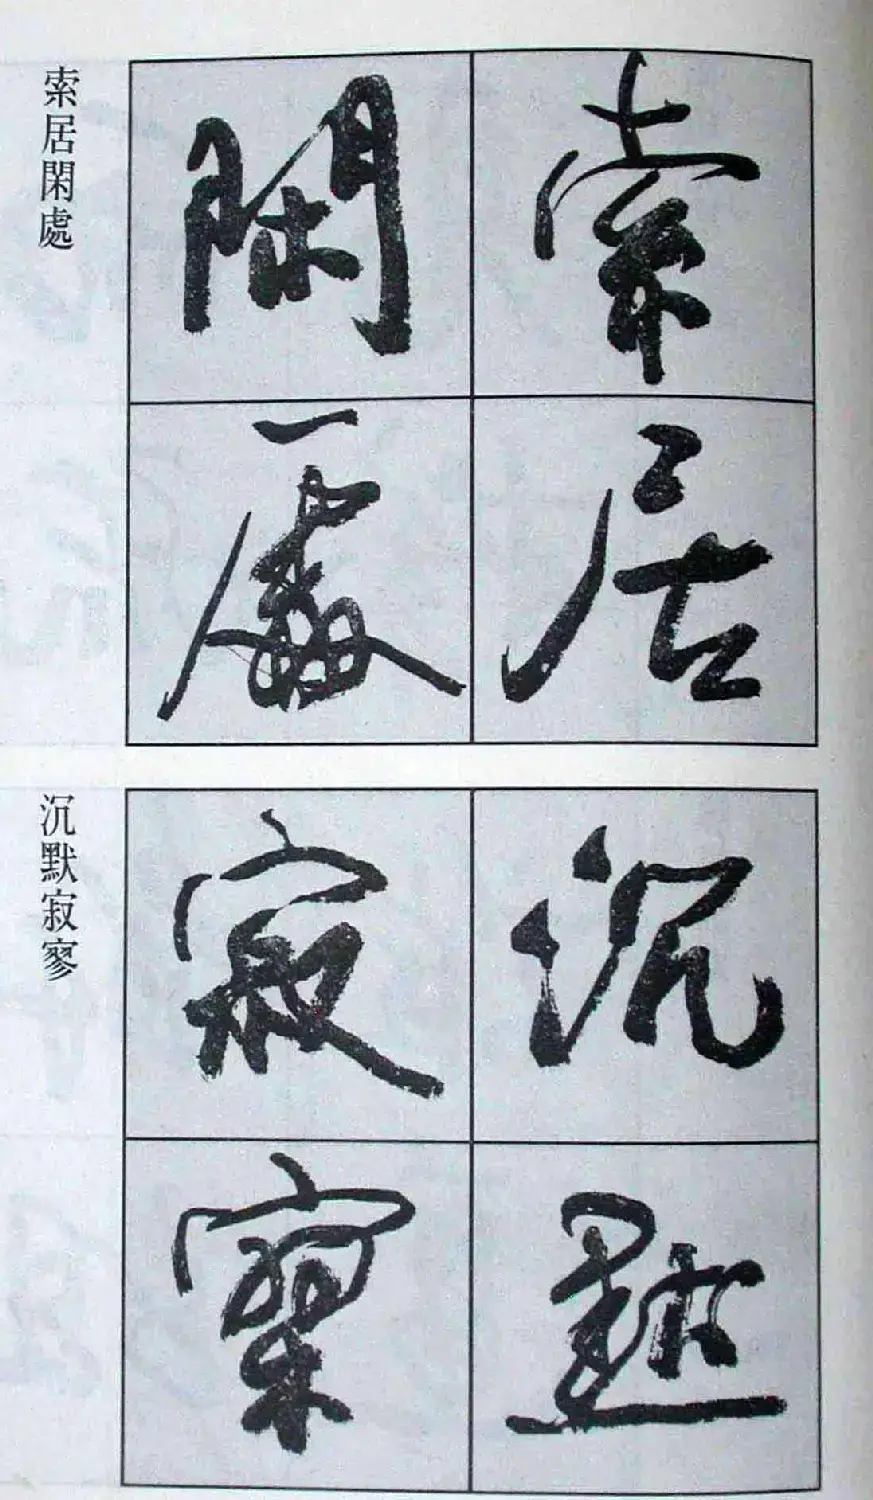 索居
閑處
索居閑處
沉默
寂寥
沉默寂寥